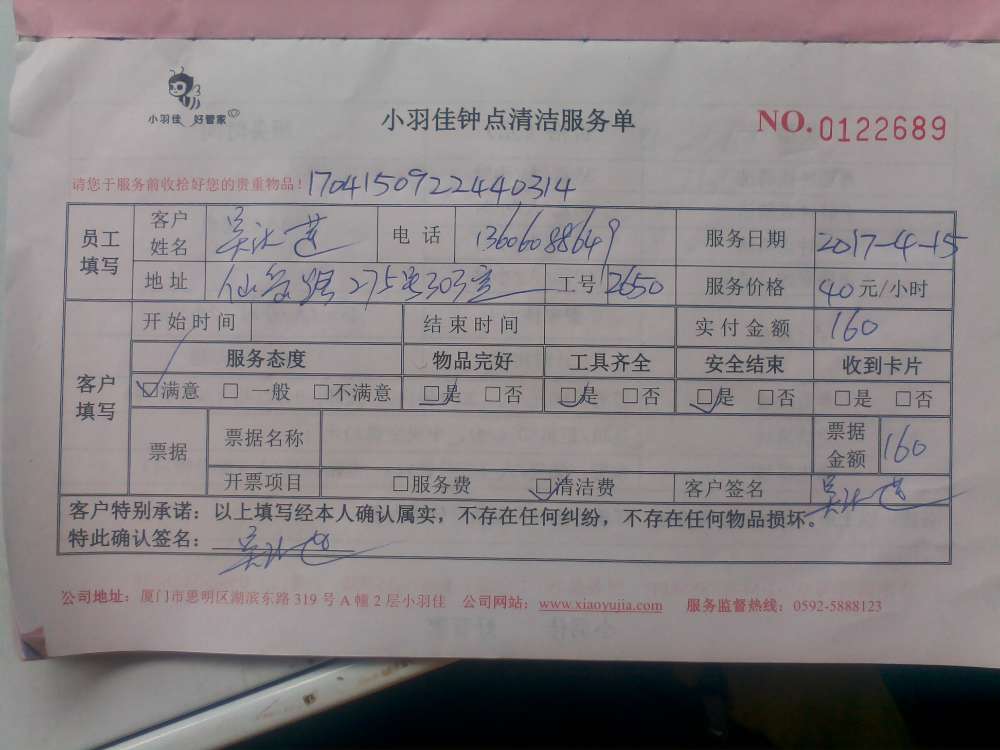 小羽佳 好管家
小羽佳钟点清洁服务单
NO. 0122689
请您于服务前收拾好您的贵重物品！1704150922440314
员工填写 客户姓名 电话 13606088649 服务日期 2017-4-15
地址 仙岳路275号303室 工号 2650 服务价格 40元/小时
客户填写 开始时间 结束时间 实付金额 160
服务态度 物品完好 工具齐全 安全结束 收到卡片
☑满意 □一般 □不满意 ☑是 □否 ☑是 □否 ☑是 □否 □是 □否
票据 票据名称 票据金额 160
开票项目 □服务费 ☑清洁费 客户签名
客户特别承诺：以上填写经本人确认属实，不存在任何纠纷，不存在任何物品损坏。
特此确认签名：
公司地址：厦门市思明区湖滨东路 319 号 A 幢 2 层小羽佳 公司网站：www.xiaoyujia.com 服务监督热线：0592-5888123